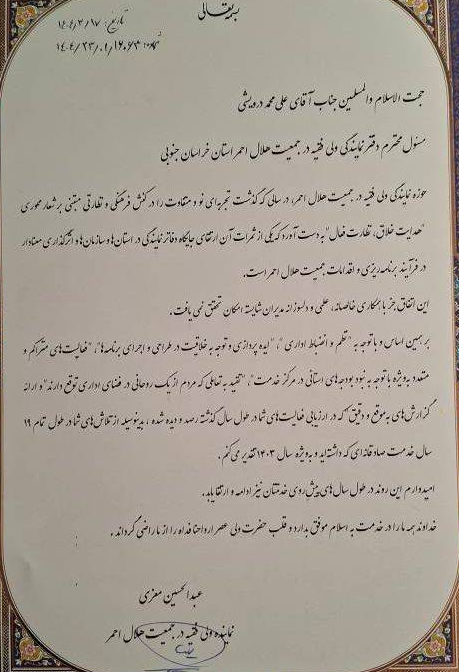 بسمه تعالی
تاریخ: ۱۴۰۴/۳/۱۷
شماره: ۱۴۰۴/۲۳/۰۱/۱۶۰۶۳
حجت الاسلام والمسلمین جناب آقای علی محمد درویشی
مسئول محترم دفتر نمایندگی ولی فقیه در جمعیت هلال احمر استان خراسان جنوبی
حوزه نمایندگی ولی فقیه در جمعیت هلال احمر، در سالی که گذشت تجربه‌ای نو و متفاوت را در کنش فرهنگی و نظارتی مبتنی بر شعار محوری
"هدایت خلاق، نظارت فعال" به دست آورد که یکی از ثمرات آن ارتقای جایگاه دفاتر نمایندگی در استان‌ها و سازمان‌ها و اثرگذاری معنادار
در فرآیند برنامه‌ریزی و اقدامات جمعیت هلال احمر است.
این اتفاق جز با همکاری خالصانه، علمی و دلسوزانه مدیران شایسته امکان تحقق نمی یافت.
بر همین اساس و با توجه به "نظم و انضباط اداری"، "ایده پردازی و توجه به خلاقیت در طراحی و اجرای برنامه‌ها"، "فعالیت‌های متراکم و
متعدد به‌ویژه با توجه به نبود بودجه‌های استانی در مرکز خدمت"، "تقید به تعاملی که مردم از یک روحانی در فضای اداری توقع دارند" و ارائه
گزارش‌های به‌موقع و دقیق" که در ارزیابی فعالیت‌های شما در طول سال گذشته رصد و دیده شده، بدینوسیله از تلاش‌های شما در طول تمام ۱۹
سال خدمت صادقانه‌ای که داشته‌اید و به‌ویژه سال ۱۴۰۳ تقدیر می‌کنم.
امیدوارم این روند در طول سال‌های پیش‌روی خدمتتان نیز ادامه و ارتقا یابد.
خداوند همه ما را در خدمت به اسلام موفق بدارد و قلب حضرت ولی عصر ارواحنا فداه را از ما راضی گرداند.
عبدالحسین معزی
نماینده ولی فقیه در جمعیت هلال احمر